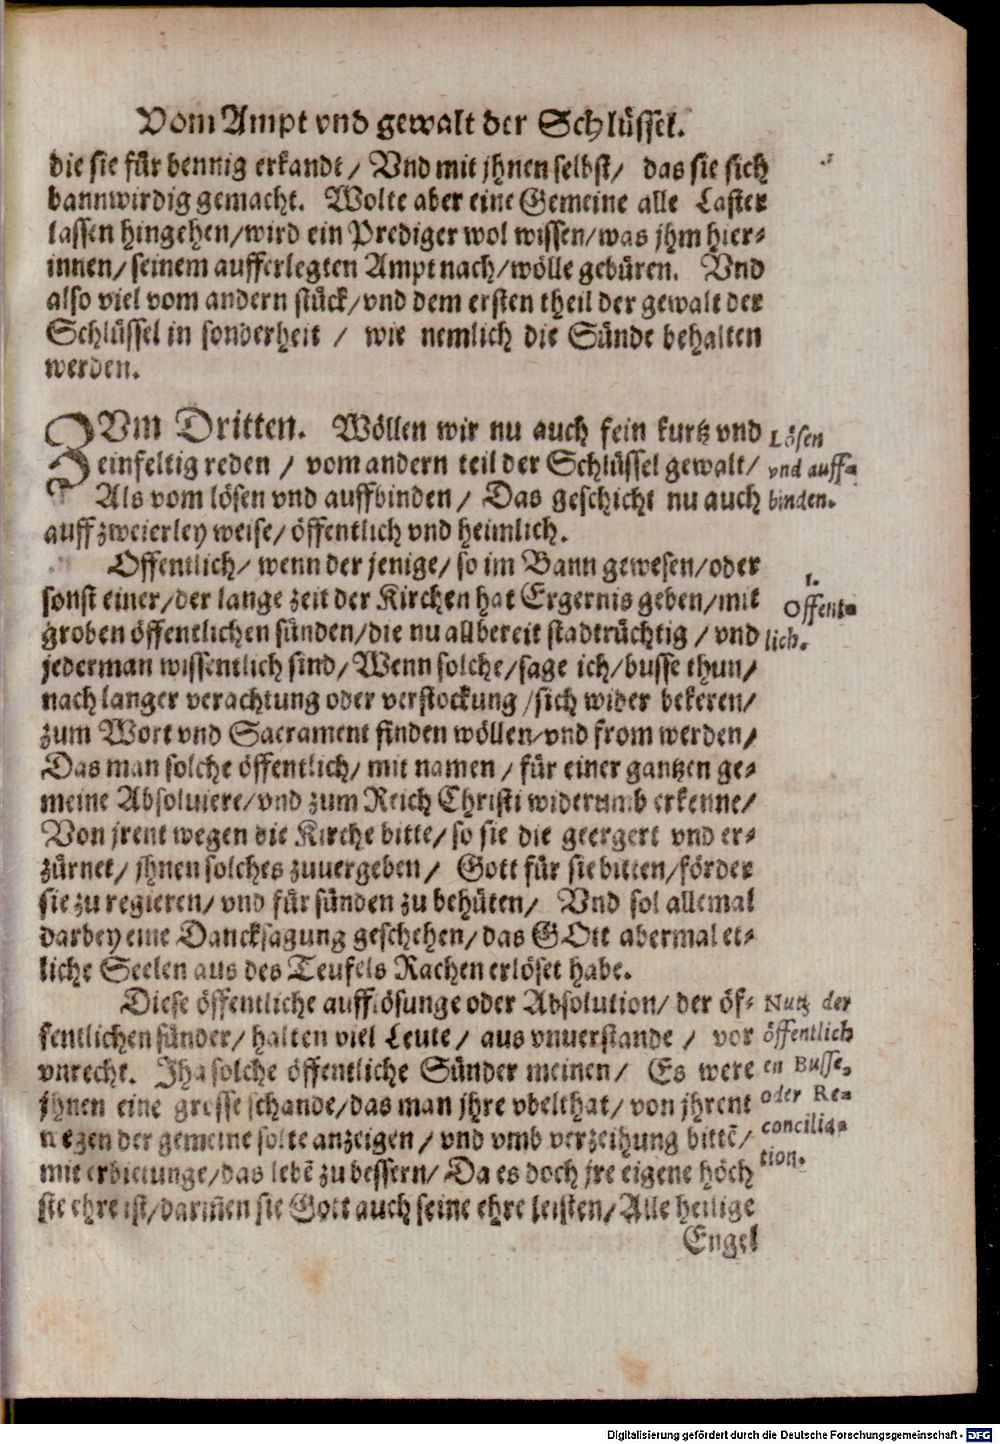 Vom Ampt vnd gewalt der Schlüssel.
die sie für bennig erkandt / Vnd mit jhnen selbst / das sie sich
bannwirdig gemacht. Wolte aber eine Gemeine alle Laster
lassen hingehen / wird ein Prediger wol wissen / was jhm hier-
innen / seinem aufferlegten Ampt nach / wölle gebüren. Vnd
also viel vom andern stück / vnd dem ersten theil der gewalt der
Schlüssel in sonderheit / wie nemlich die Sünde behalten
werden.
ZVm Dritten. Wöllen wir nu auch fein kurtz vnd
einfeltig reden / vom andern teil der Schlüssel gewalt /
Als vom lösen vnd auffbinden / Das geschicht nu auch
auff zweierley weise / öffentlich vnd heimlich.
Lösen
vnd auff-
binden.
Offentlich / wenn der jenige / so im Bann gewesen / oder
sonst einer / der lange zeit der Kirchen hat Ergernis geben / mit
groben öffentlichen sünden / die nu allbereit stadtrüchtig / vnd
jederman wissentlich sind / Wenn solche / sage ich / busse thun /
nach langer verachtung oder verstockung / sich wider bekeren /
zum Wort vnd Sacrament finden wöllen / vnd from werden /
Das man solche öffentlich / mit namen / für einer gantzen ge-
meine Absoluiere / vnd zum Reich Christi widerumb erkenne /
Von jrent wegen die Kirche bitte / so sie die geergert vnd er-
zürnet / jhnen solches zuuergeben / Gott für sie bitten / förder
sie zu regieren / vnd für sünden zu behüten / Vnd sol allemal
darbey eine Dancksagung geschehen / das GOtt abermal et-
liche Seelen aus des Teufels Rachen erlöset habe.
1.
Offent-
lich.
Diese öffentliche aufflösunge oder Absolution / der öf-
fentlichen sünder / halten viel Leute / aus vnuerstande / vor
vnrecht. Jha solche öffentliche Sünder meinen / Es were
jhnen eine grosse schande / das man jhre vbelthat / von jhrent
wegen der gemeine solte anzeigen / vnd vmb verzeihung bittē /
mit erbietunge / das lebē zu bessern / Da es doch jre eigene höch
ste ehre ist / dariñen sie Gott auch seine ehre leisten / Alle heilige
Nutz der
öffentlich
en Busse,
oder Re-
concilia-
tion.
Engel
Digitalisierung gefördert durch die Deutsche Forschungsgemeinschaft - DFG